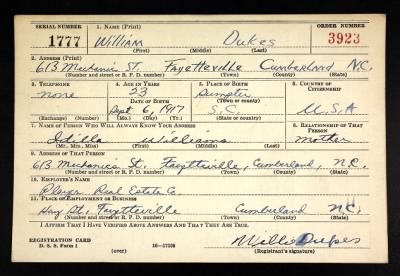 SERIAL NUMBER
1. NAME (Print)
ORDER NUMBER
1777 William Dukes 3923
(First) (Middle) (Last)
2. ADDRESS (Print)
613 Mechanic St. Fayetteville Cumberland N.C.
(Number and street or R. F. D. number) (Town) (County) (State)
3. TELEPHONE
4. AGE IN YEARS
5. PLACE OF BIRTH
6. COUNTRY OF CITIZENSHIP
none
23
Sumpter
(Town or county)
DATE OF BIRTH
Sept 6, 1917
S.C.
U.S.A
(Exchange) (Number)
(Mo.) (Day) (Yr.)
(State or country)
7. NAME OF PERSON WHO WILL ALWAYS KNOW YOUR ADDRESS
8. RELATIONSHIP OF THAT PERSON
Williams mother
(Mr., Mrs., Miss) (First) (Middle) (Last)
9. ADDRESS OF THAT PERSON
613 Mechanics St. Fayetteville, Cumberland, N.C.
(Number and street or R. F. D. number) (Town) (County) (State)
10. EMPLOYER'S NAME
Real Estate Co
11. PLACE OF EMPLOYMENT OR BUSINESS
Hay St. Fayetteville Cumberland N.C.
(Number and street or R. F. D. number) (Town) (County) (State)
I AFFIRM THAT I HAVE VERIFIED ABOVE ANSWERS AND THAT THEY ARE TRUE.
REGISTRATION CARD
D. S. S. Form 1
(over)
Willie
(Registrant's signature)